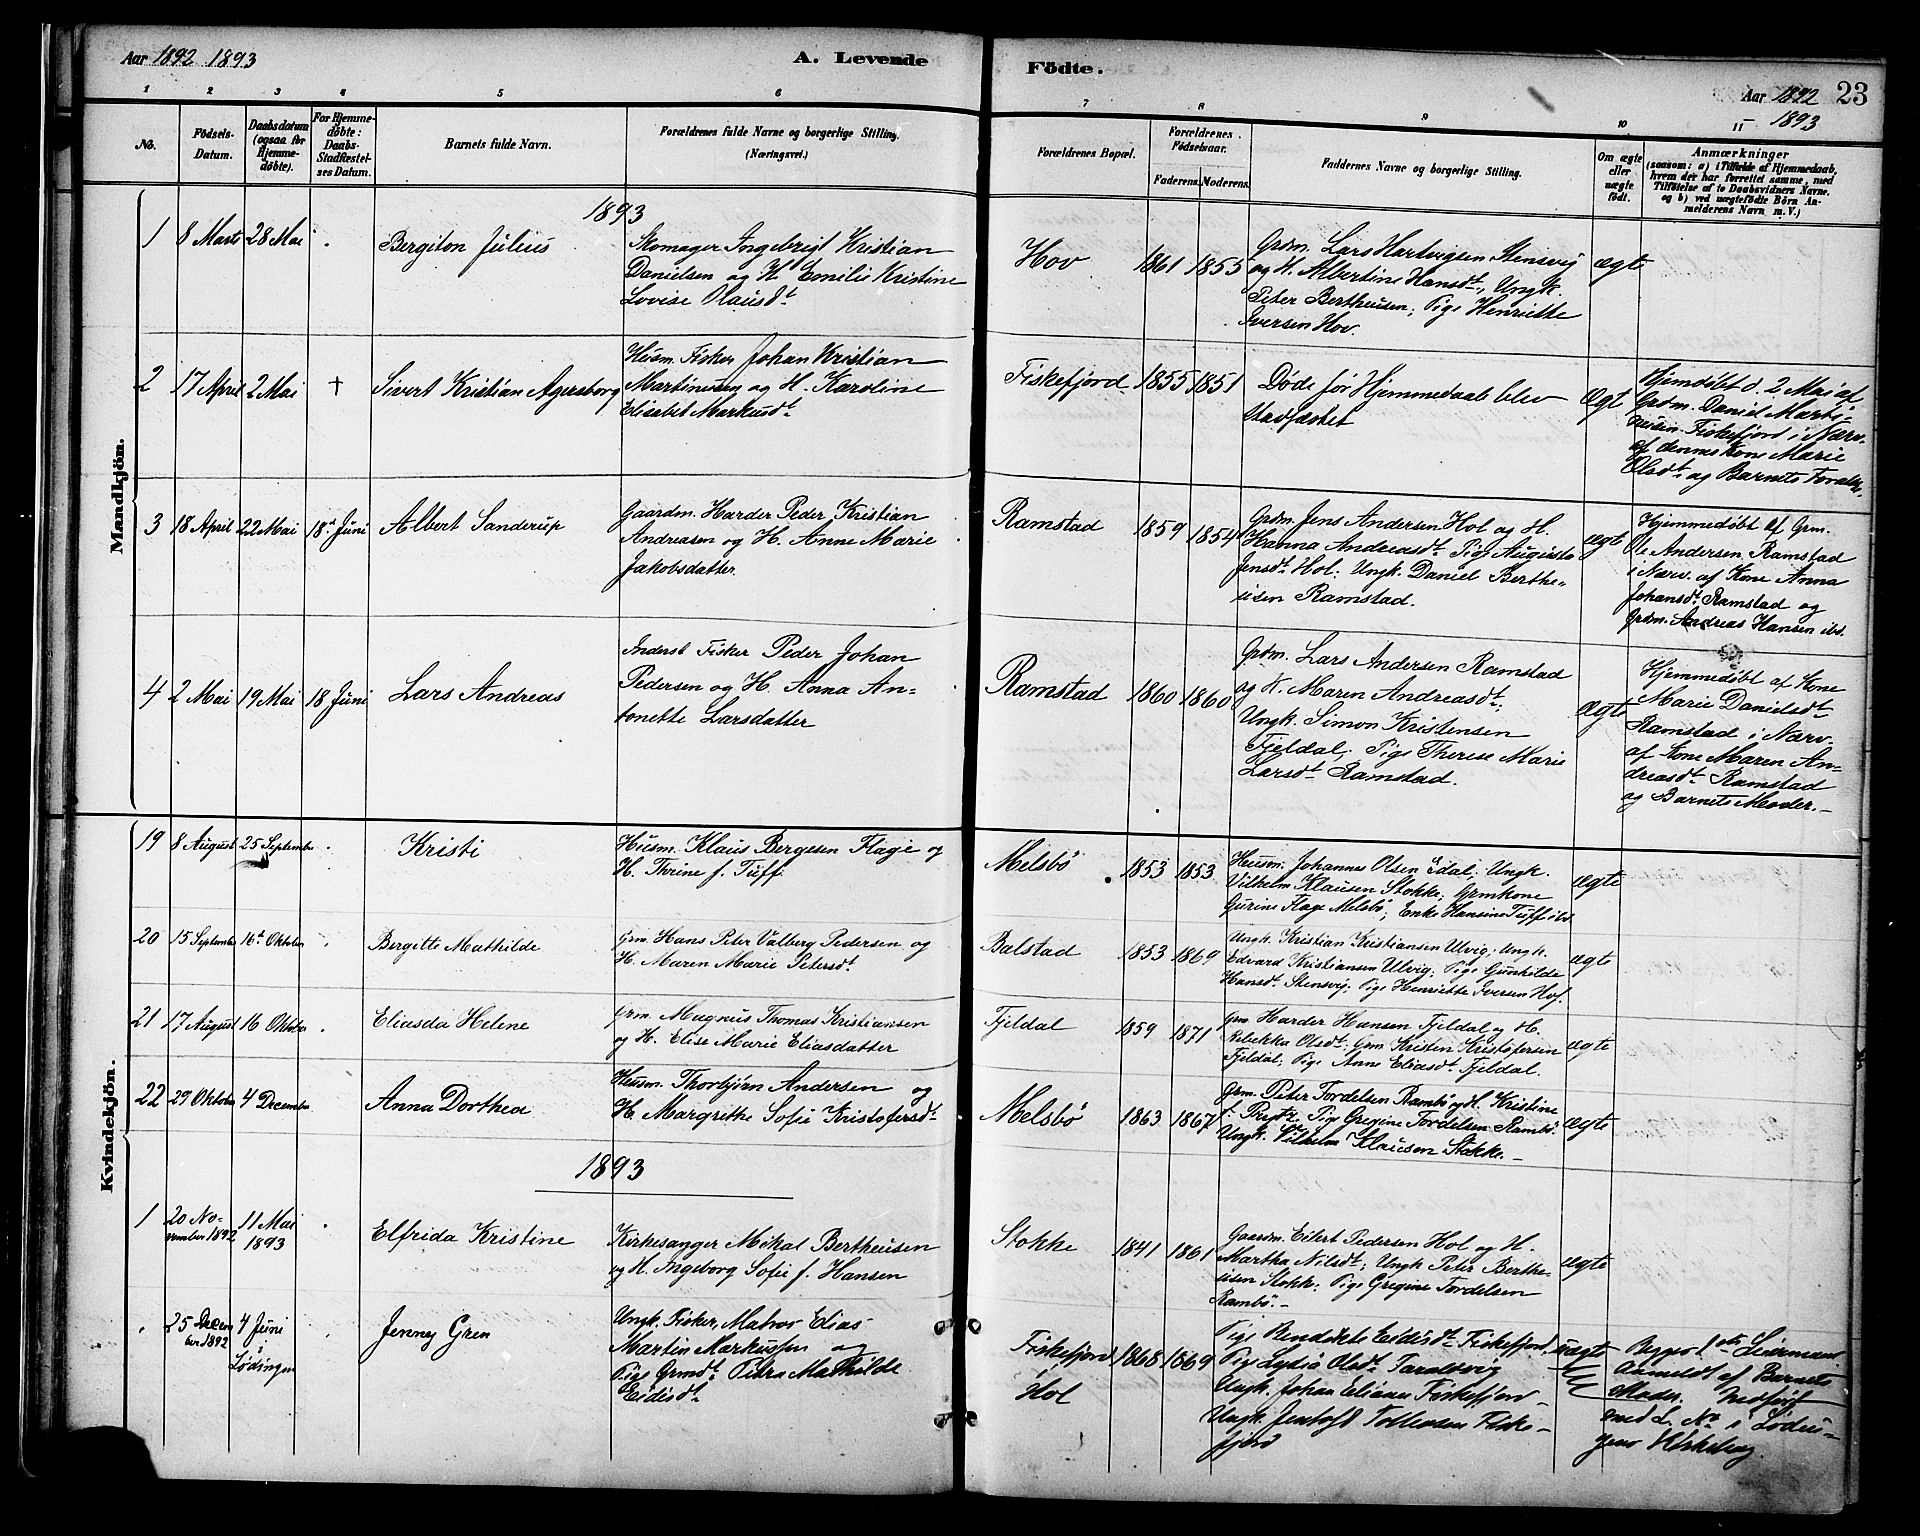 Aar 1892 1893
A. Levende
Födte.
Aar 1892
- 1893
23
1 2 3 4 5 6 7 8 9 10 11
No.
Födsels-
Datum.
Daabsdatum
(ogsaa for
Hjemme-
døbte).
For Hjemme-
døbte:
Daabs-
Stadfæstel-
ses Datum.
Barnets fulde Navn.
Forældrenes fulde Navne og borgerlige Stilling.
(Næringsvei.)
Forældrenes Bopæl.
Forældrenes
Födselsaar.
Faderens. Moderens.
Faddernes Navne og borgerlige Stilling.
Om ægte
eller
uægte
födt.
Anmærkninger
(saasom: a) i Tilfælde af Hjemmedaab,
hvem der har forrettet samme, med
Tilföielse af to Daabsvidners Navne,
og b) ved uægtefödte Börn An-
melderens Navn m. V.)
Mandkjön.
1893
1 8 Marts 28 Mai . Bergiton Julius
Skomager Ingebrigt Kristian
Danielsen og H. Emilie Kristine
Lovise Olausdt
Hov 1861 1855
Grdm. Lars Hartvigsen Stensvij
og H. Albertine Hansdt, Ungk.
Peter Bertheusen; Pige Henriette
Iversen Hov.
ægte
2 17 April 2 Mai + Sivert Kristian Agersborg
Husm. Fisker Johan Kristian
Martinusen og H. Karoline
Elisebet Markusdt
Fiskefjord 1855 1851
Døde før Hjemmedaab blev
stadfæstet
Ægt
Hjemdøbt d. 2 Mai af
Grdm. Daniel Marti-
nusen Fiskefjord i Nærv.
af dennes Kone Marie
Olsdt og Barnets Foræld.
3 18 April 22 Mai 18d Juni Albert Sanderup
Gaardm. Harder Peder Kristian
Andreasen og H. Anne Marie
Jakobsdatter.
Ramstad 1859 1854
Grdm. Jens Andersen Hol og H.
Hanna Andreasdt Pige Augusta
Jensdt Hol; Ungk. Daniel Berthe-
usen Ramstad.
ægt
Hjemmedøbt af Grm.
Ole Andersen Ramstad
i Nærv. af Kone Anna
Johansdt Ramstad og
Grdm. Andreas Hansen ibd.
4 2 Mai 19 Mai 18 Juni Lars Andreas
Inderst Fisker Peder Johan
Pedersen og H. Anna An-
tonette Larsdatter
Ramstad 1860 1860
Grdm. Lars Andersen Ramstad
og H. Maren Andreasdt;
Ungk. Simon Kristensen
Fjeldal; Pige Therese Marie
Larsdt Ramstad.
Ægte
Hjemmedøbt af Kone
Marie Danielsdt
Ramstad i Nærv.
af Kone Maren An-
dreasdt Ramstad
og Barnets Moder.-
Kvindekjön.
19 8 August 25 Septembr . Kristi
Husm. Klaus Bergesen Flage og
H. Thrine f. Tuff
Melsbö 1853 1853
Husm. Johannes Olsen Edal; Ungk.
Vilhelm Klausen Stokke; Grmkone
Gurine Flage Melsbö; Enke Hansine Tuff ibd
ægte
20 15 Septembr 16d Oktober . Bergitte Mathilde
Grm. Hans Peter Valberg Pedersen og
H. Maren Marie Petersdt
Balstad 1853 1869
Ungk. Kristian Kristiansen Ulvig; Ungk.
Edvard Kristiansen Ulvig; Pige Gunhilde
Hansdt Stensvij; Pige Henriette Iversen Hof.
ægte
21 17 August 16 Oktober . Eliasda Helene
Grm. Magnus Thomas Kristiansen
og H. Elise Marie Eliasdatter
Fjeldal 1859 1871
Grm. Harder Hansen Fjeldal og H.
Rebekka Olsdt; Grm Kristen Kristofersen
Fjeldal; Pige Anne Eliasdt Fjeldal.
ægte
22 29 Oktober 4 December Anna Dorthea
Husm. Thorbjørn Andersen og
H. Margrethe Sofie Kristofersdt
Melsbö 1863 1867
Grm. Peter Tordelsen Rambö og H. Kristine
Pige Gregine Tordelsen Rambö
Ungk. Vilhelm Klausen Stokke.-
Ægte
1893
1 20 No-
vember 1892
11 Mai
1893
. Elfrida Kristine
Kirkesanger Mikal Bertheusen
og H. Ingeborg Sofie f. Hansen
Stokke 1841 1861
Gaardm. Eilert Pedersen Hol og H.
Martha Nilsdt; Ungk Peter Berthe-
usen Stokk; Pige Gregine Tordelsen
Rambö.-
ægte
. 25 Decem
ber 1892
4 Juni
Lødingen
. Jenney Gren
Ungk. Fisker, Matros Elias
Martin Markussen og
Pige Grmdt Petra Mathilde
Eidisdt
Fiskefjord
Hol
1868 1869
Pige Bendikte Eidisdt Fiskefjord,
Pige Lydia Olsdt Taraldsvig
Ungk. Johan Eliasen Fiskefjord-
Ungk. Jentoft Tollevsen Fiske-
fjord
uægte
Begges 1ste Leiermaal
Anmeldt af Barnets
Moder. Indført
med No i Lødin-
gens Kirkebog